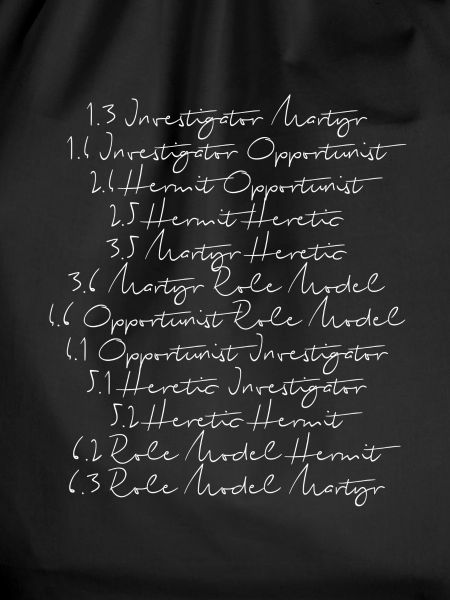 1.3 Investigator Martyr
1.4 Investigator Opportunist
2.4 Hermit Opportunist
2.5 Hermit Heretic
3.5 Martyr Heretic
3.6 Martyr Role Model
4.6 Opportunist Role Model
4.1 Opportunist Investigator
5.1 Heretic Investigator
5.2 Heretic Hermit
6.2 Role Model Hermit
6.3 Role Model Martyr